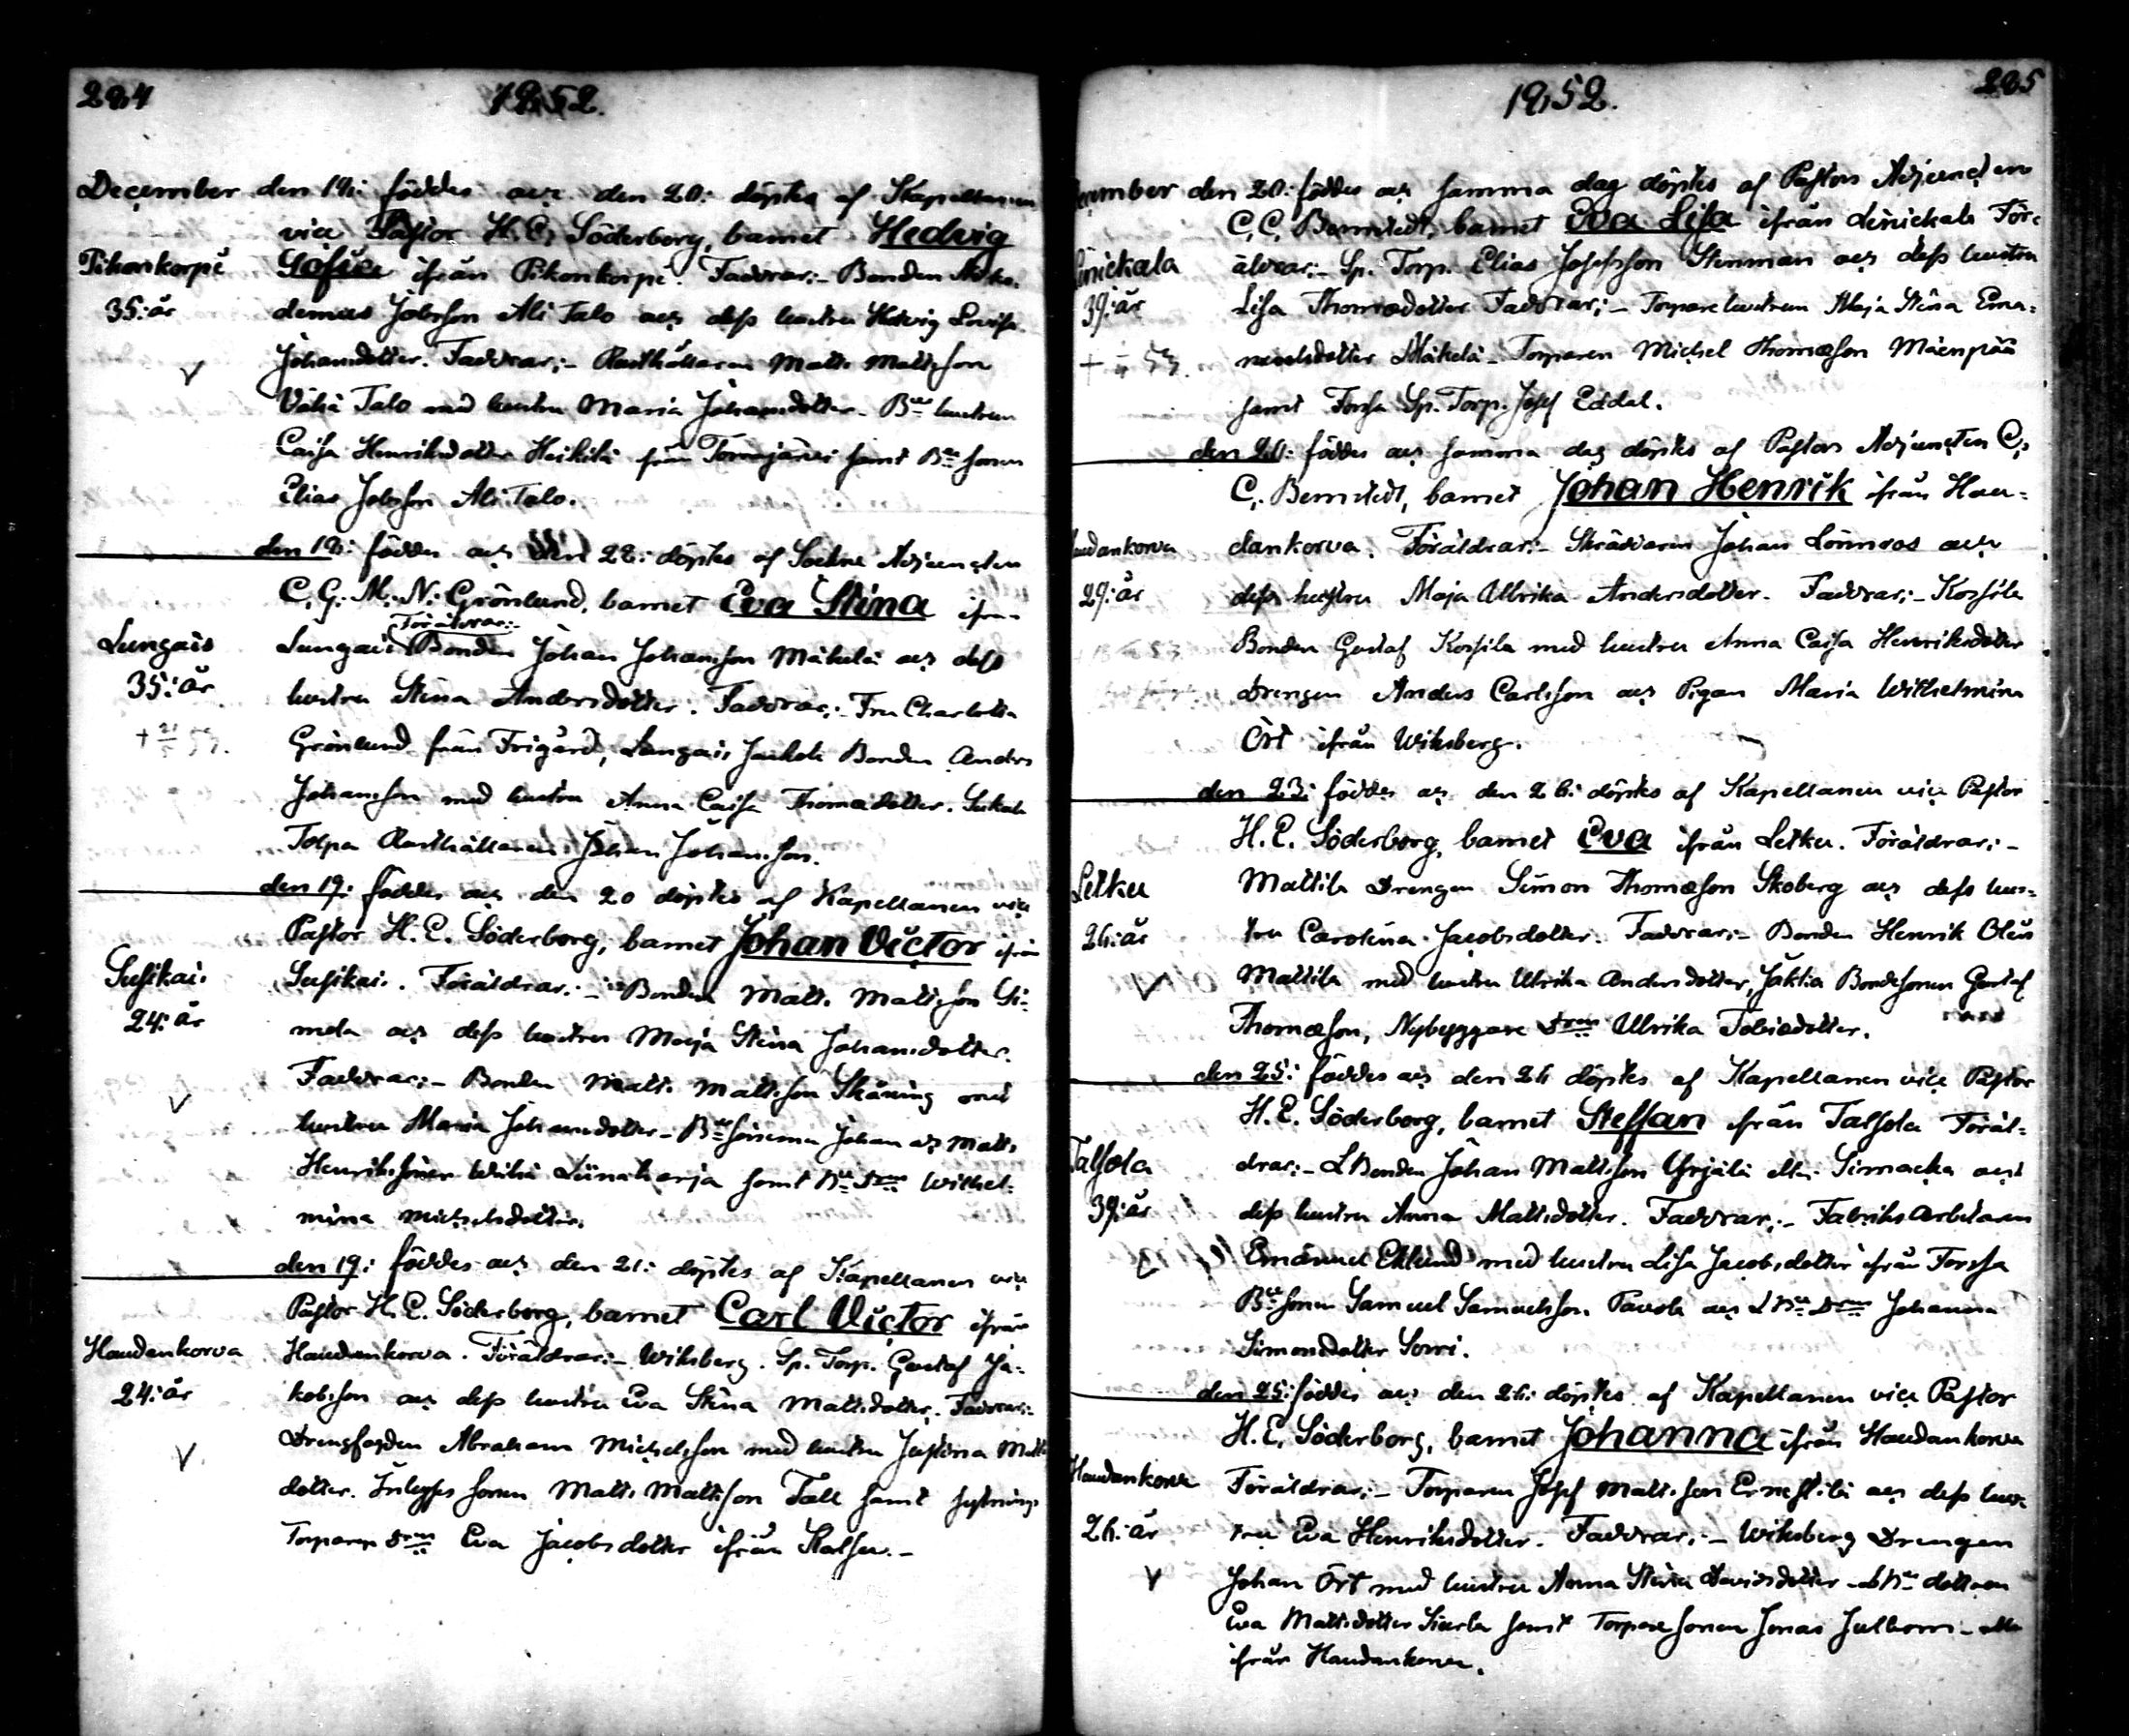 284
1852.
December den 18: föddes och den 20: döptes af Kapellanen
vice Pastor H. E. Söderborg, barnet Hedvig
Pihonkorpi Sofia ifrån Pihonkorpi. Faddrar:- Bonden Niko-
35: år demus Jobsson Ali Talo och dess hustru Hedvig Lovisa
Johansdotter. Faddrar:- Rusthållaren Matts Mattsson
Vähä Talo med hustru Maria Johansdotter. Bde hustrun
Caisa Henriksdotter Heikilä från Torrojärvi samt Bde sonen
Elias Jobsson Ali Talo.
den 18: föddes och den 28: döptes af Sockne Adjuncten
C. G. M. N. Grönlund, barnet Eva Stina ifrån
Föräldrar:-
Lungais Lungais Bonden Johan Johansson Mäkelä och dess
35: år hustru Stina Andersdotter. Faddrar:- Fru Charlotta
Grönlund från Frigård, Lungais Bonden Anders
Johansson med hustru Anna Caisa Thomasdotter.
Tolpa Rusthållaren Johan Johansson.
den 19: föddes och den 20 döptes af Kapellanen vice
Pastor H. E. Söderborg, barnet Johan Victor ifrån
Susikai. Susikai. Föräldrar:- Bonden Matts Mattsson Si-
24: år mola och dess hustru Maja Stina Johansdotter.
Faddrar:- Bonden Matts Mattsson Skäning med
hustru Maria Johansdotter - Bde sönerna Johan och Matts
Henrikssöner Liinaharja samt Bde Dram Wilhel-
mina Michelsdotter.
den 19: föddes och den 21: döptes af Kapellanen vice
Pastor H. E. Söderborg, barnet Carl Victor ifrån
Haudankorva Haudankorva. Föräldrar:- Wiksberg Sp. Torp. Gustaf Ja-
24: år kobsson och dess hustru Eva Stina Mattsdotter. Faddrar:-
Drengfogden Abraham Michelsson med hustru Justina Matts
dotter. Inhyses sonen Matts Mattsson Tall samt
Torparen Dram Eva Jacobsdotter ifrån
285
1852.
December den 20: föddes och samma dag döptes af Pastors Adjuncten
C. C. Bernstedt, barnet Eva Lisa ifrån Linickala För-
Linickala äldrar:- Sp. Torp. Elias Josefsson Stenman och dess hustru
39: år Lisa Thomasdotter Faddrar:- Torpare hustrun Maja Stina Ema-
nuelsdotter Mäkelä - Torparen Michel Thomasson Mäenpää
samt Forssa Sp. Torp. Josef Eddal.
den 21: föddes och samma dag döptes af Pastors Adjuncten C.
C. Bernstedt, barnet Johan Henrik ifrån Hau-
Haudankorva dankorva. Föräldrar:- Skräddaren Johan Lönnroos och
29: år dess hustru Maja Ulrika Andersdotter. Faddrar:- Korsila
Bonden Gustaf Korsila med hustru Anna Caisa Henriksdotter
Drengen Anders Carlsson och Pigan Maria Wilhelmina
Ört ifrån Wiksberg.
den 23: föddes och den 26: döptes af Kapellanen vice Pastor
H. E. Söderborg, barnet Eva ifrån Letku. Föräldrar:-
Letku Mattila Drengen Simon Thomasson Skoberg och dess hus-
26: år tru Carolina Jacobsdotter. Faddrar:- Bonden Henrik Olin
Mattila med hustru Ulrika Andersdotter, Jäktia Bondesonen Gustaf
Thomasson, Nybyggare Dram Ulrika Tobiasdotter.
den 25: föddes och den 26 döptes af Kapellanen vice Pastor
H. E. Söderborg, barnet Steffan ifrån Talsola Föräl-
Talsola drar:- LBonden Johan Mattsson Yrjälä eller Simacka och
39: år dess hustru Anna Mattsdotter. Faddrar:- Fabriks Arbetaren
Emanuel Eklund med hustru Lisa Jacobsdotter ifrån Forssa
Bde sonen Samuel Samuelsson Pavola och LBde Dram Johanna
Simonsdotter Sorri.
den 25: föddes och den 26: döptes af Kapellanen vice Pastor
H. E. Söderborg, barnet Johanna ifrån Haudankorva
Haudankorva Föräldrar:- Torparen Josef Mattsson Ernestilä och dess hus-
26: år tru Eva Henriksdotter. Faddrar:- Wiksberg Drengen
Johan Ört med hustru Anna Stina Davidsdotter - dottren
Eva Mattsdotter samt Torpare sonen Jonas - alla
ifrån Haudankorva.